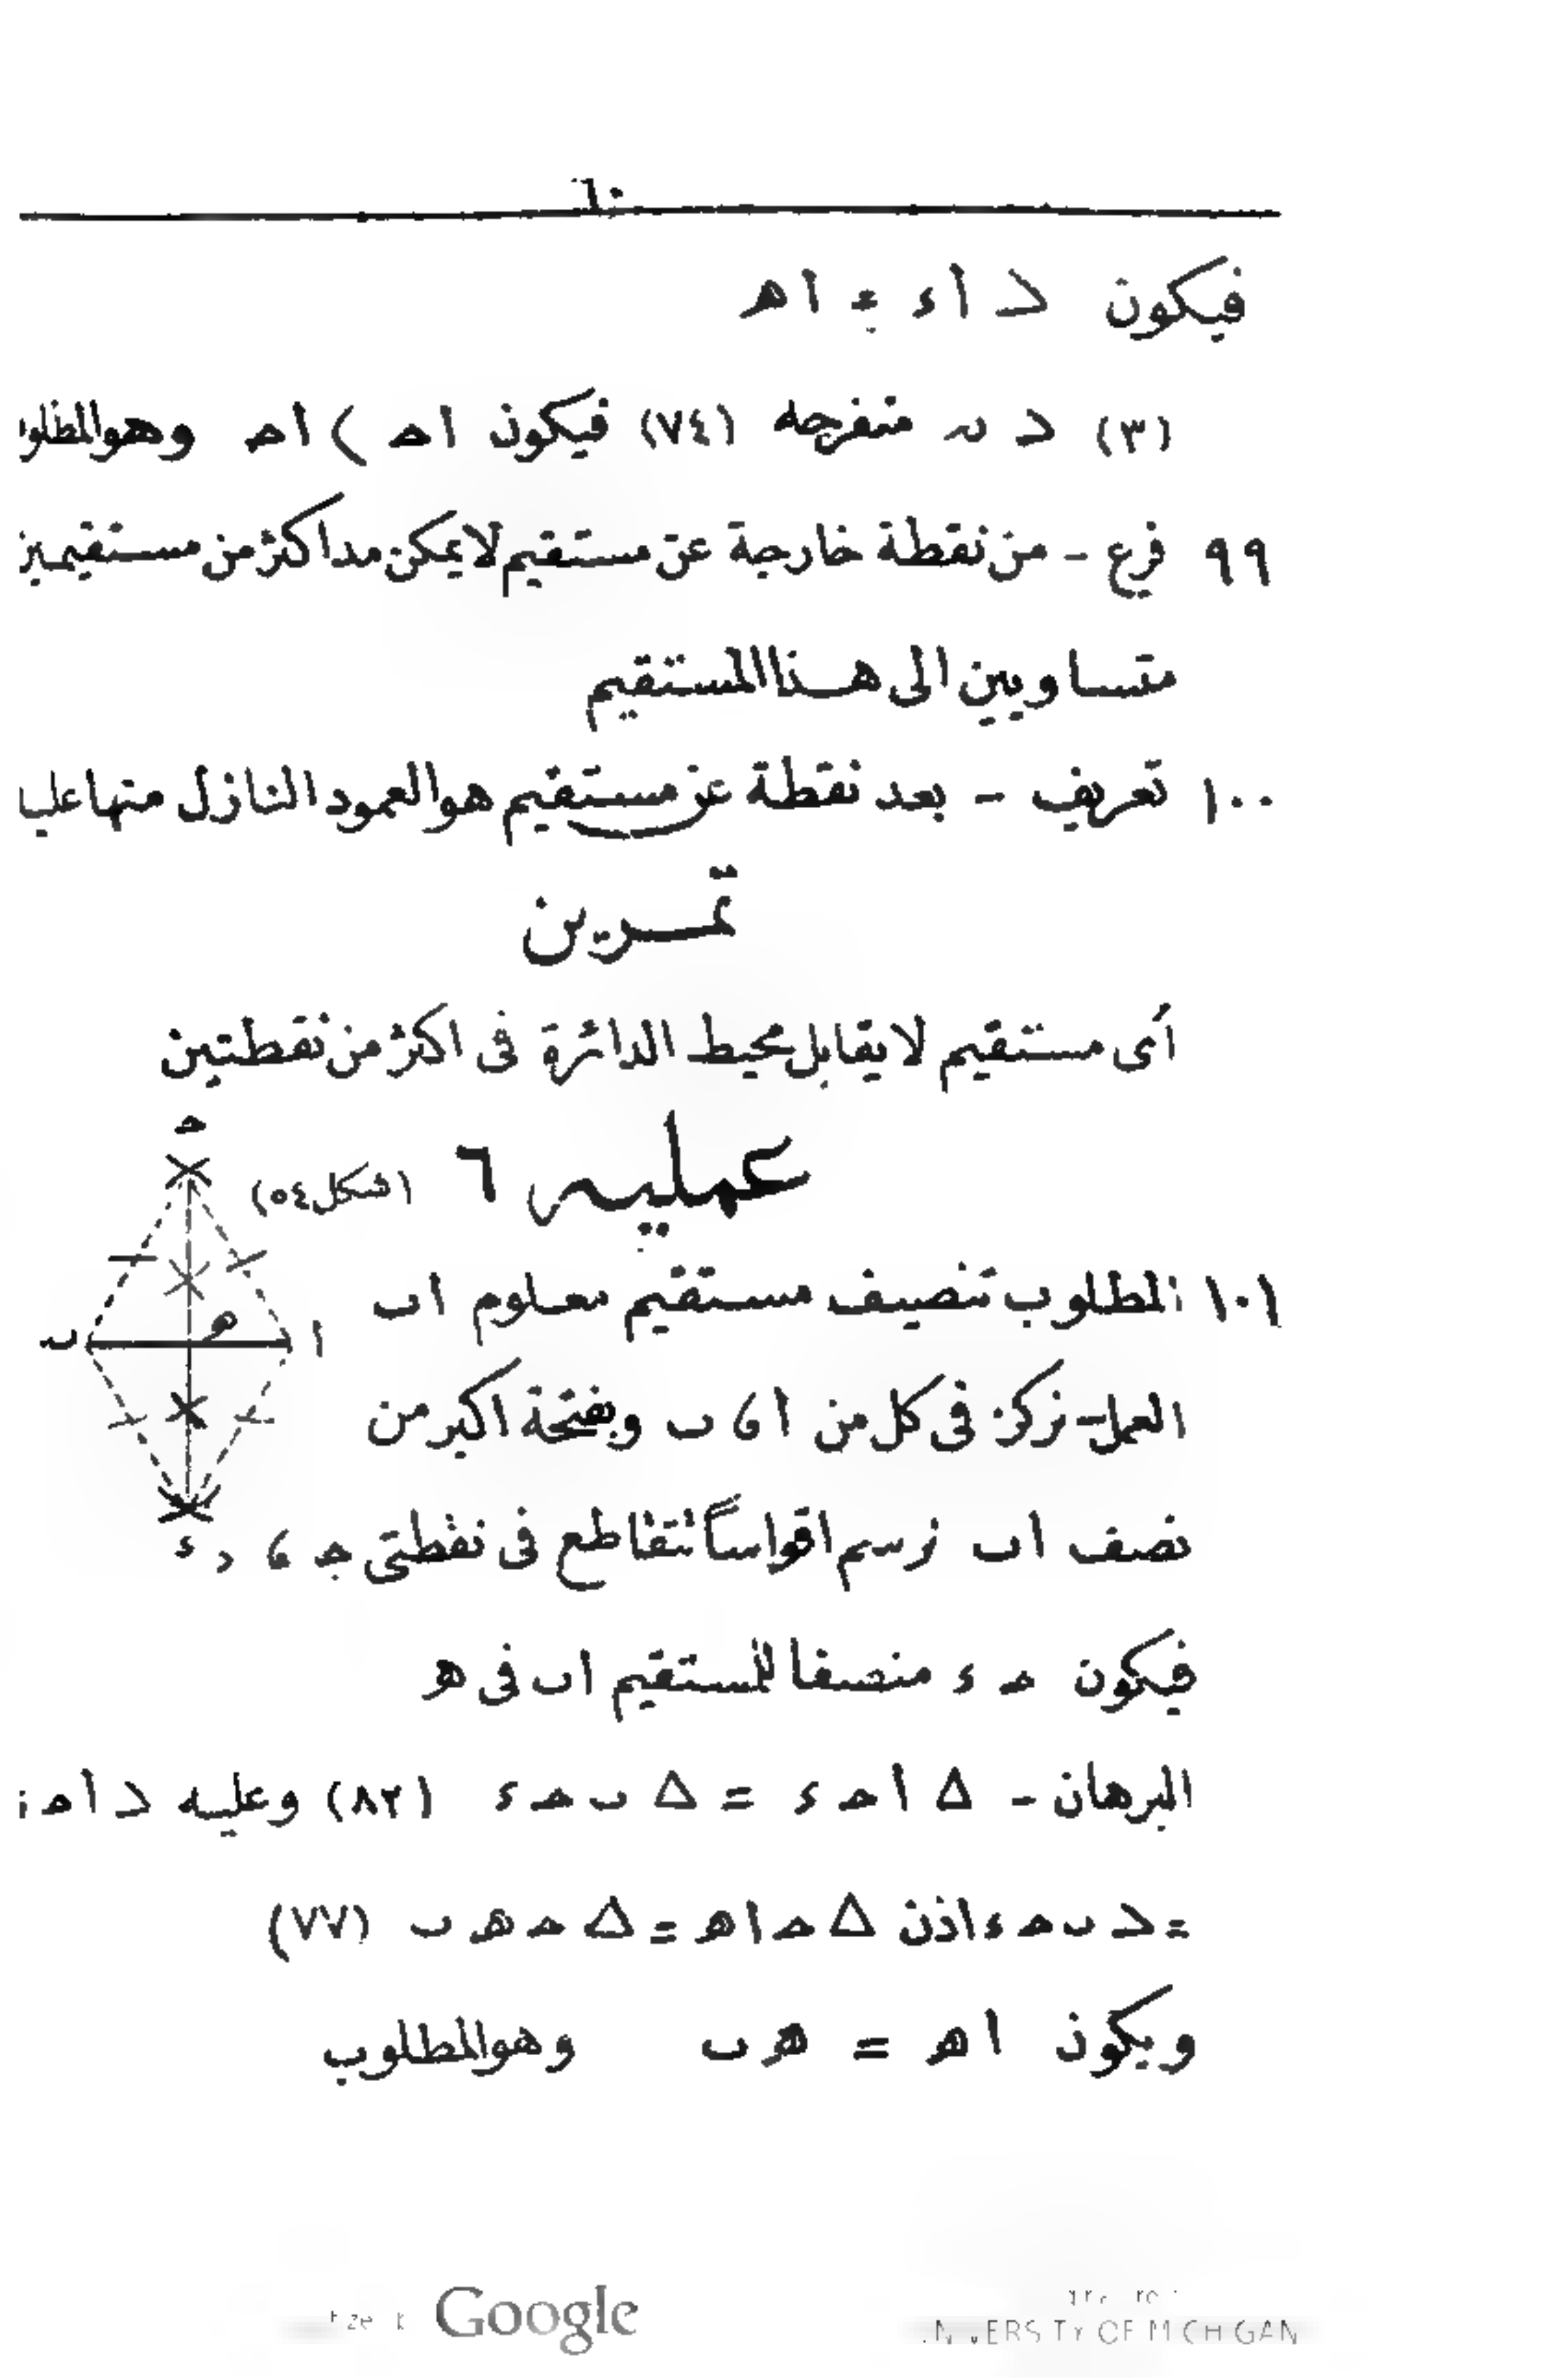 ٦٠
فيكون د ا ء = ا هـ
(٣) د ں منفرجه (٧٤) فيكون ا هـ ) ا حـ وهو المطلو
٩٩ فرع - من نقطة خارجة عن مستقيم لا يمكن مد اكثر من مستقيمين
متساويين الى هذا المستقيم
١٠٠ تعريف - بعد نقطة عن مستقيم هو العمود النازل منها عليـ
تمرين
أى مستقيم لا يقابل محيط الدائرة فى اكثر من نقطتين
عمليه ٦ (شكل ٥٤)
حـ
هـ
ا
ب
ء
١٠١ المطلوب تنصيف مستقيم معلوم ا ب
العمل - نركز فى كل من ا ، ب وبفتحة اكبر من
نصف ا ب نرسم اقواساً تتقاطع فى نقطتى جـ ، د
فيكون حـ ء منصفا للمستقيم ا ب فى هـ
البرهان - △ ا حـ ء = △ ب حـ ء (٨٢) وعليه د ا حـ
= د ب حـ ء اذن △ حـ ا هـ = △ حـ هـ ب (٧٧)
ويكون ا هـ = هـ ب وهو المطلوب
Google
UNIVERSITY OF MICHIGAN